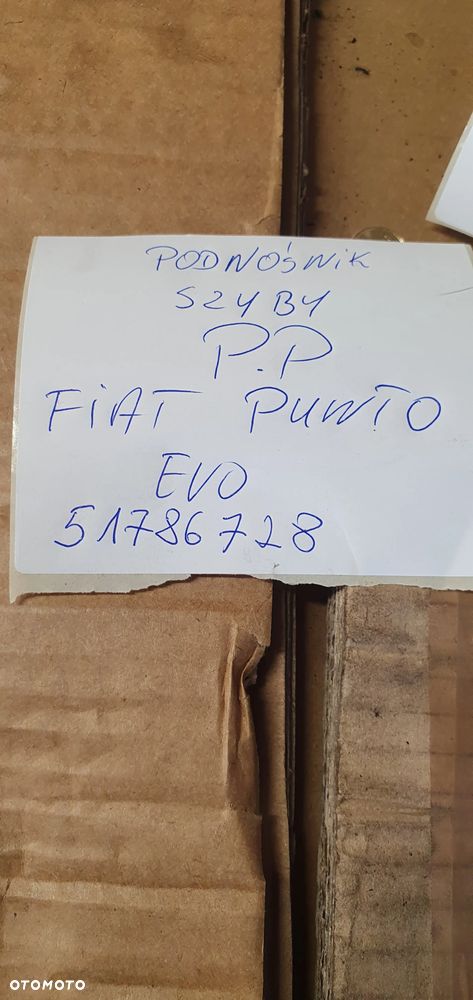 PODNOŚNIK
SZYBY
P.P
FIAT PUNTO
EVO
51786728
OTOMOTO